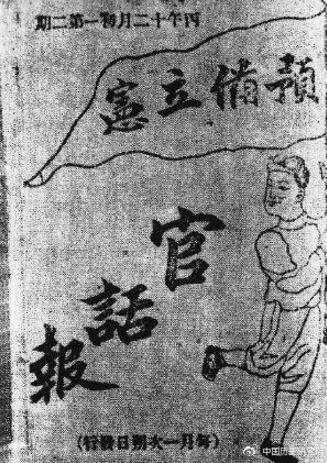 丙午十二月初一第二期
預備立憲
官話報
(每月一次朔日發行)
中国历史研究院